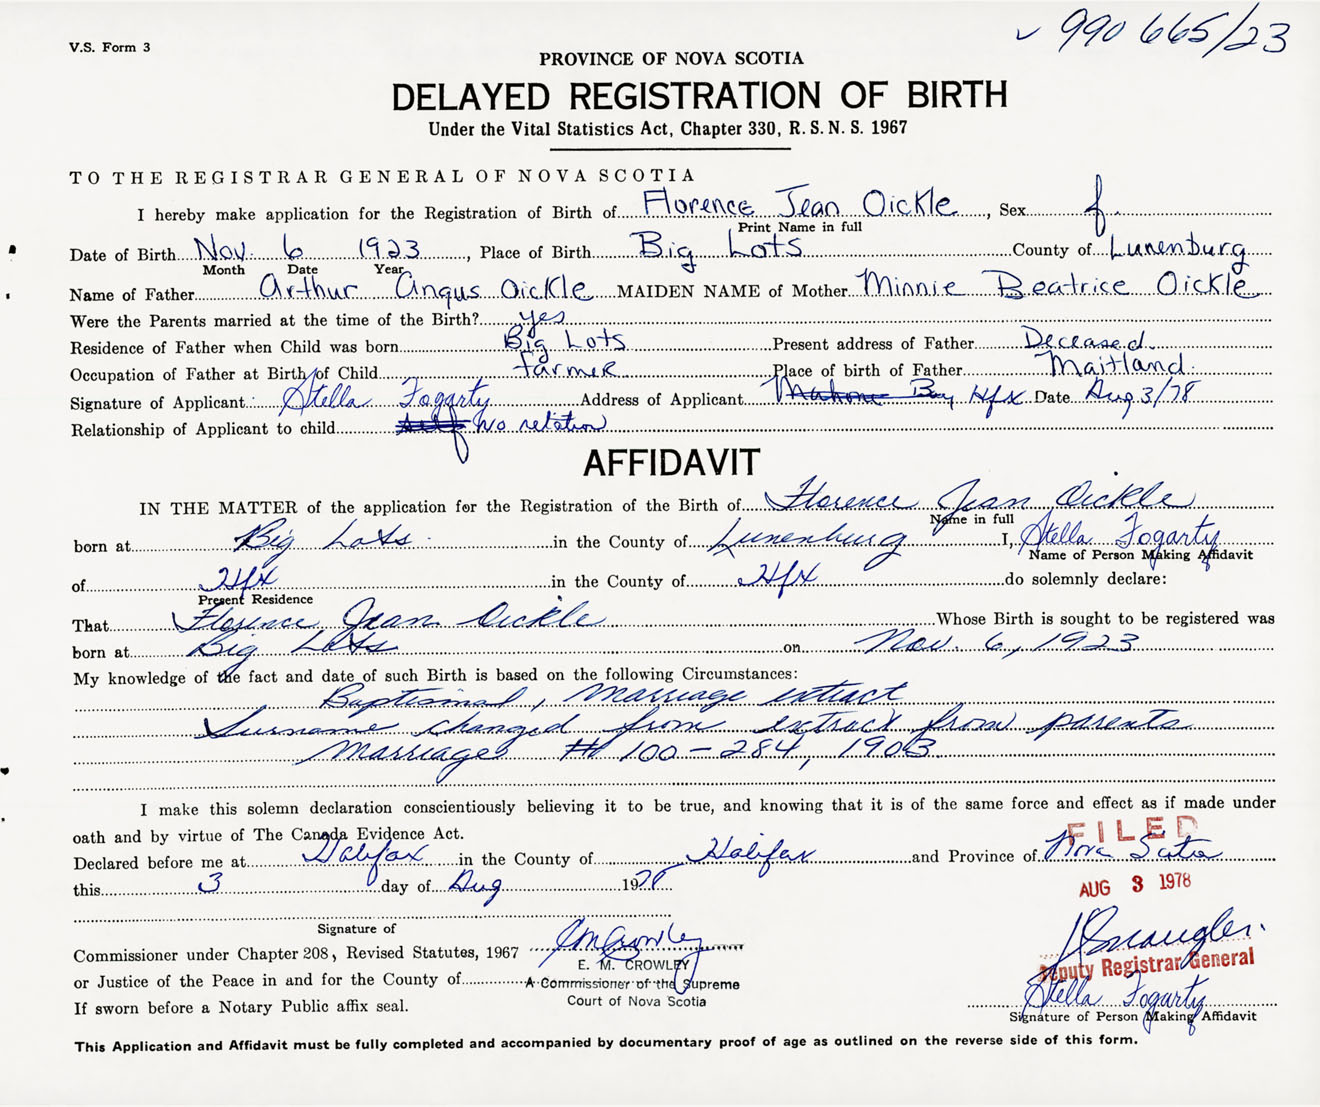 ✓ 990 665/23
V.S. Form 3
PROVINCE OF NOVA SCOTIA
DELAYED REGISTRATION OF BIRTH
Under the Vital Statistics Act, Chapter 330, R.S.N.S. 1967
TO THE REGISTRAR GENERAL OF NOVA SCOTIA
I hereby make application for the Registration of Birth of Florence Jean Oickle, Sex f.
Print Name in full
Date of Birth Nov. 6 1923, Place of Birth Big Lots County of Lunenburg
Month Date Year
Name of Father Arthur Angus Oickle MAIDEN NAME of Mother Minnie Beatrice Oickle
Were the Parents married at the time of the Birth? yes
Residence of Father when Child was born Big Lots Present address of Father Deceased.
Occupation of Father at Birth of Child farmer Place of birth of Father Maitland.
Signature of Applicant: Stella Fogarty Address of Applicant Mahone Bay Hfx Date Aug 3/78
Relationship of Applicant to child self No relation
AFFIDAVIT
IN THE MATTER of the application for the Registration of the Birth of Florence Jean Oickle
Name in full
born at Big Lots in the County of Lunenburg I, Stella Fogarty
Name of Person Making Affidavit
of Hfx in the County of Hfx do solemnly declare:
Present Residence
That Florence Jean Oickle Whose Birth is sought to be registered was
born at Big Lots on Nov. 6, 1923
My knowledge of the fact and date of such Birth is based on the following Circumstances:
Baptismal, Marriage extract
Surname changed from extract from parents
Marriage # 100-284, 1903
I make this solemn declaration conscientiously believing it to be true, and knowing that it is of the same force and effect as if made under
oath and by virtue of The Canada Evidence Act.
FILED
Declared before me at Halifax in the County of Halifax and Province of Nova Scotia
this 3 day of Aug 1978
AUG 3 1978
Signature of
Commissioner under Chapter 208, Revised Statutes, 1967 EM Crowley
E. M. CROWLEY
Deputy Registrar General
or Justice of the Peace in and for the County of A Commissioner of the Supreme
Stella Fogarty
Court of Nova Scotia
If sworn before a Notary Public affix seal.
Signature of Person Making Affidavit
This Application and Affidavit must be fully completed and accompanied by documentary proof of age as outlined on the reverse side of this form.